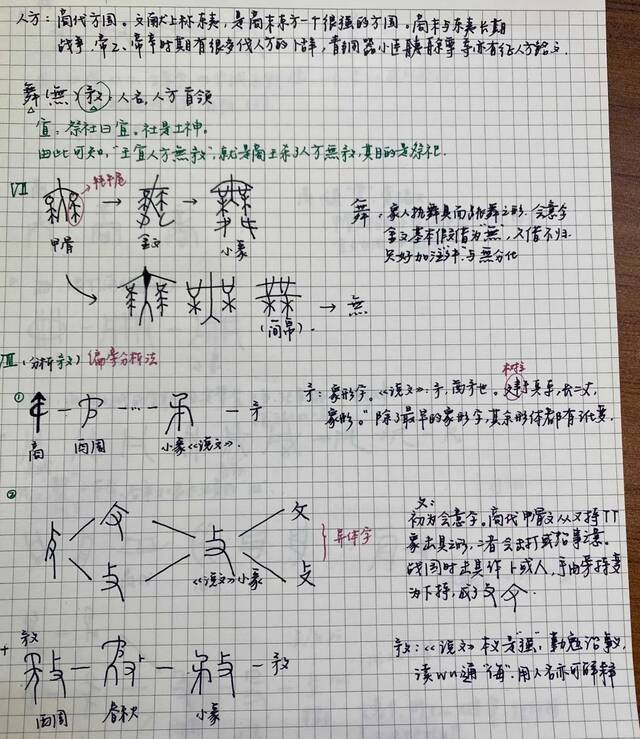 人方：商代方国。文献上称东夷，是商末东方一个很强的方国。商末与东夷长期
战争，帝乙、帝辛时期有很多伐人方的卜辞，青铜器小臣艅尊等亦有征人方铭文。
舞(無)敄：人名，人方首领
宜：祭社曰宜。社是土神。
由此可知，"王宜人方無敄"，就是商王杀了人方無敄，其目的是祭祀。
VII
牦牛尾
甲骨 → 金文 → 小篆
舞：象人执舞具而跳舞之形。会意字
金文基本假借为"無"，久借不归
只好加注"舛"与無分化
(简帛) → 無
VIII (分析敄) 偏旁分析法
①
商 西周 小篆《说文》 矛
矛：象形字。《说文》：矛，酋矛也。建于兵车，长二丈，
象形。"除了最早的象形字，其余形体都有讹变。
②
《说文》小篆
攵
攴
异体字
攵：
初为会意字。商代甲骨文从又持
象击具之形，二者会击打或治事之意。
战国时击具作卜或人，手由旁持变
为下持，成了
+ 敄
西周 春秋 小篆 敄
敄：《说文》本义是"强"，勤勉治事，
读wù，通"侮"。用人名亦可解释